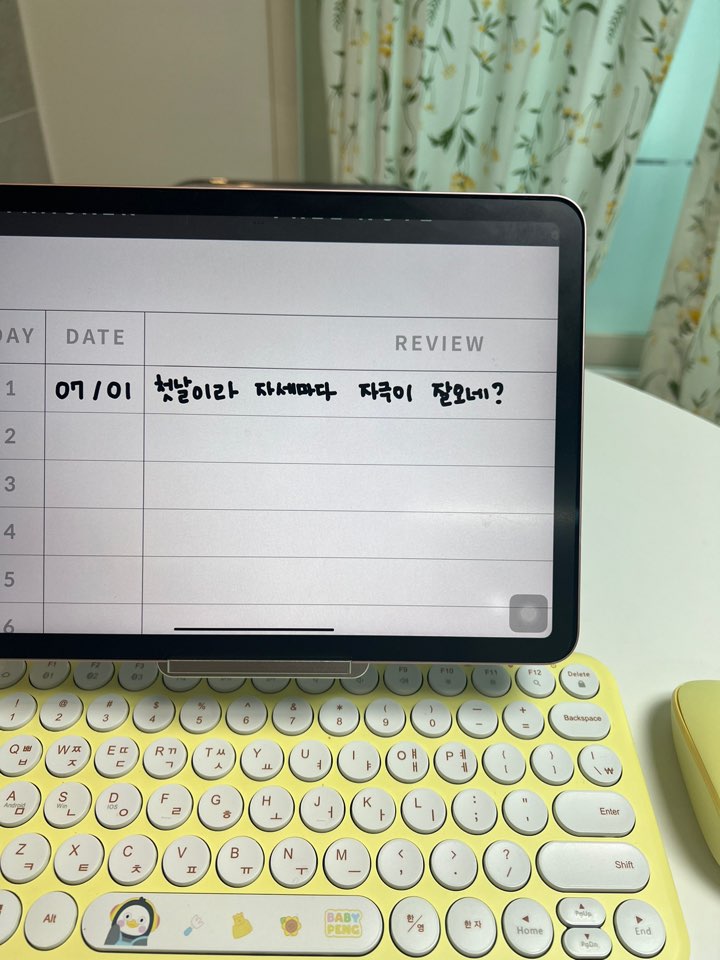 DAY DATE REVIEW
1 07/01 첫날이라 자세마다 자극이 잘오네?
2
3
4
5
6
F1 F2 F3 F9 F10 F11 F12 Delete
! 1 @ 2 # 3 $ 4 % 5 ^ 6 & 7 * 8 ( 9 ) 0 _ - + = Backspace
Q ㅃ ㅂ W ㅉ ㅈ E ㄸ ㄷ R ㄲ ㄱ T ㅆ ㅅ Y ㅛ U ㅕ I ㅑ O ㅒ ㅐ P ㅖ ㅔ { [ } ] | \ ₩
A Android ㅁ S Win ㄴ D iOS ㅇ F ㄹ G ㅎ H ㅗ J ㅓ K ㅏ L ㅣ : ; " ' Enter
Z ㅋ X ㅌ C ㅊ V ㅍ B ㅠ N ㅜ M ㅡ < , > . ? / Shift
Alt BABY PENG 한/영 한자 Home PgUp PgDn End